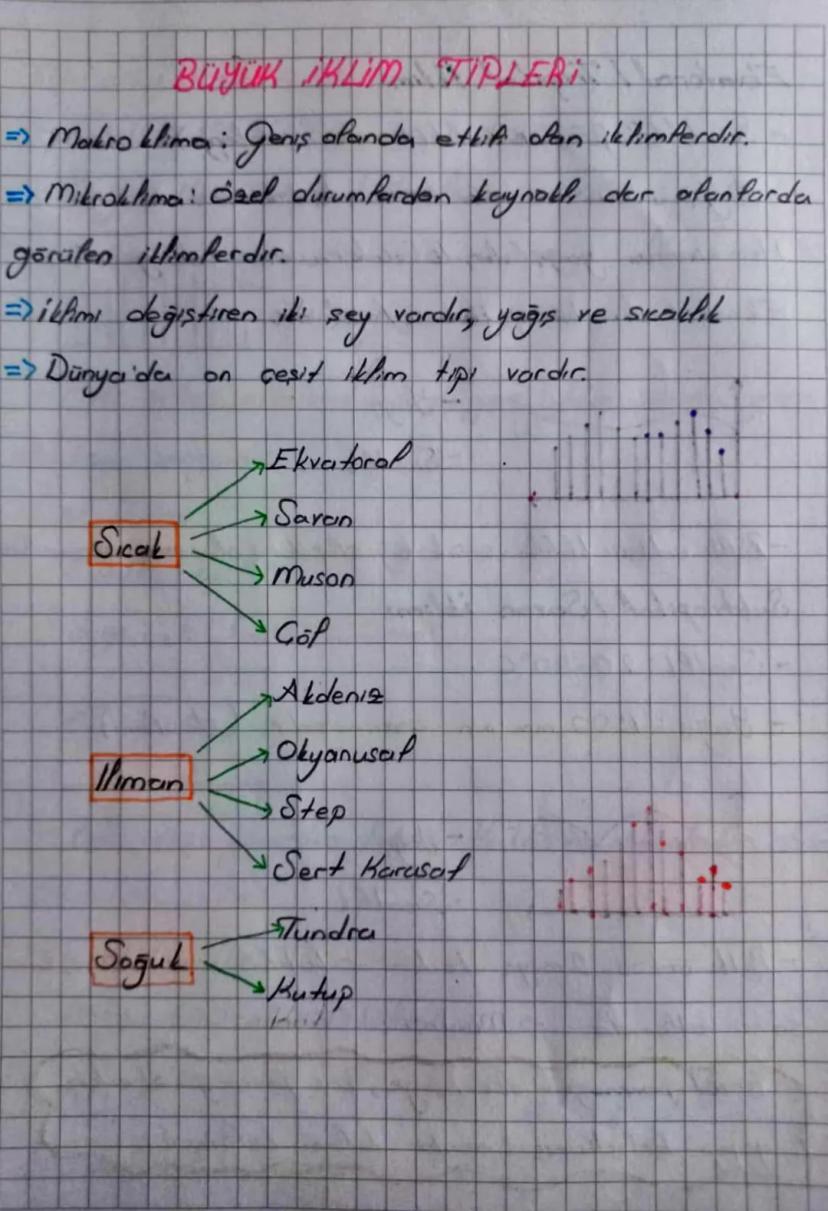 BÜYÜK İKLİM TİPLERİ
=> Makroklima: Geniş alanda etkili olan iklimlerdir.
=> Mikroklima: Özel durumlardan kaynaklı dar alanlarda
görülen iklimlerdir.
=> İklimi değiştiren iki şey vardır, yağış ve sıcaklık
=> Dünya'da on çeşit iklim tipi vardır.
Sıcak
Ekvatoral
Savan
Muson
Çöl
Ilıman
Akdeniz
Okyanusal
Step
Sert Karasal
Soğuk
Tundra
Kutup